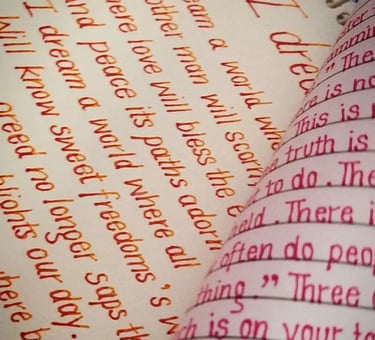 I dre
eam a world wh
other man will scorn
here love will bless the e
and peace its paths adorn
I dream a world where all
Will know sweet freedoms's w
greed no longer saps th
blights our day.
here b
" The
e is no
This is
truth is
to do. The
eld. There i
often do peop
thing." Three
h is on your to